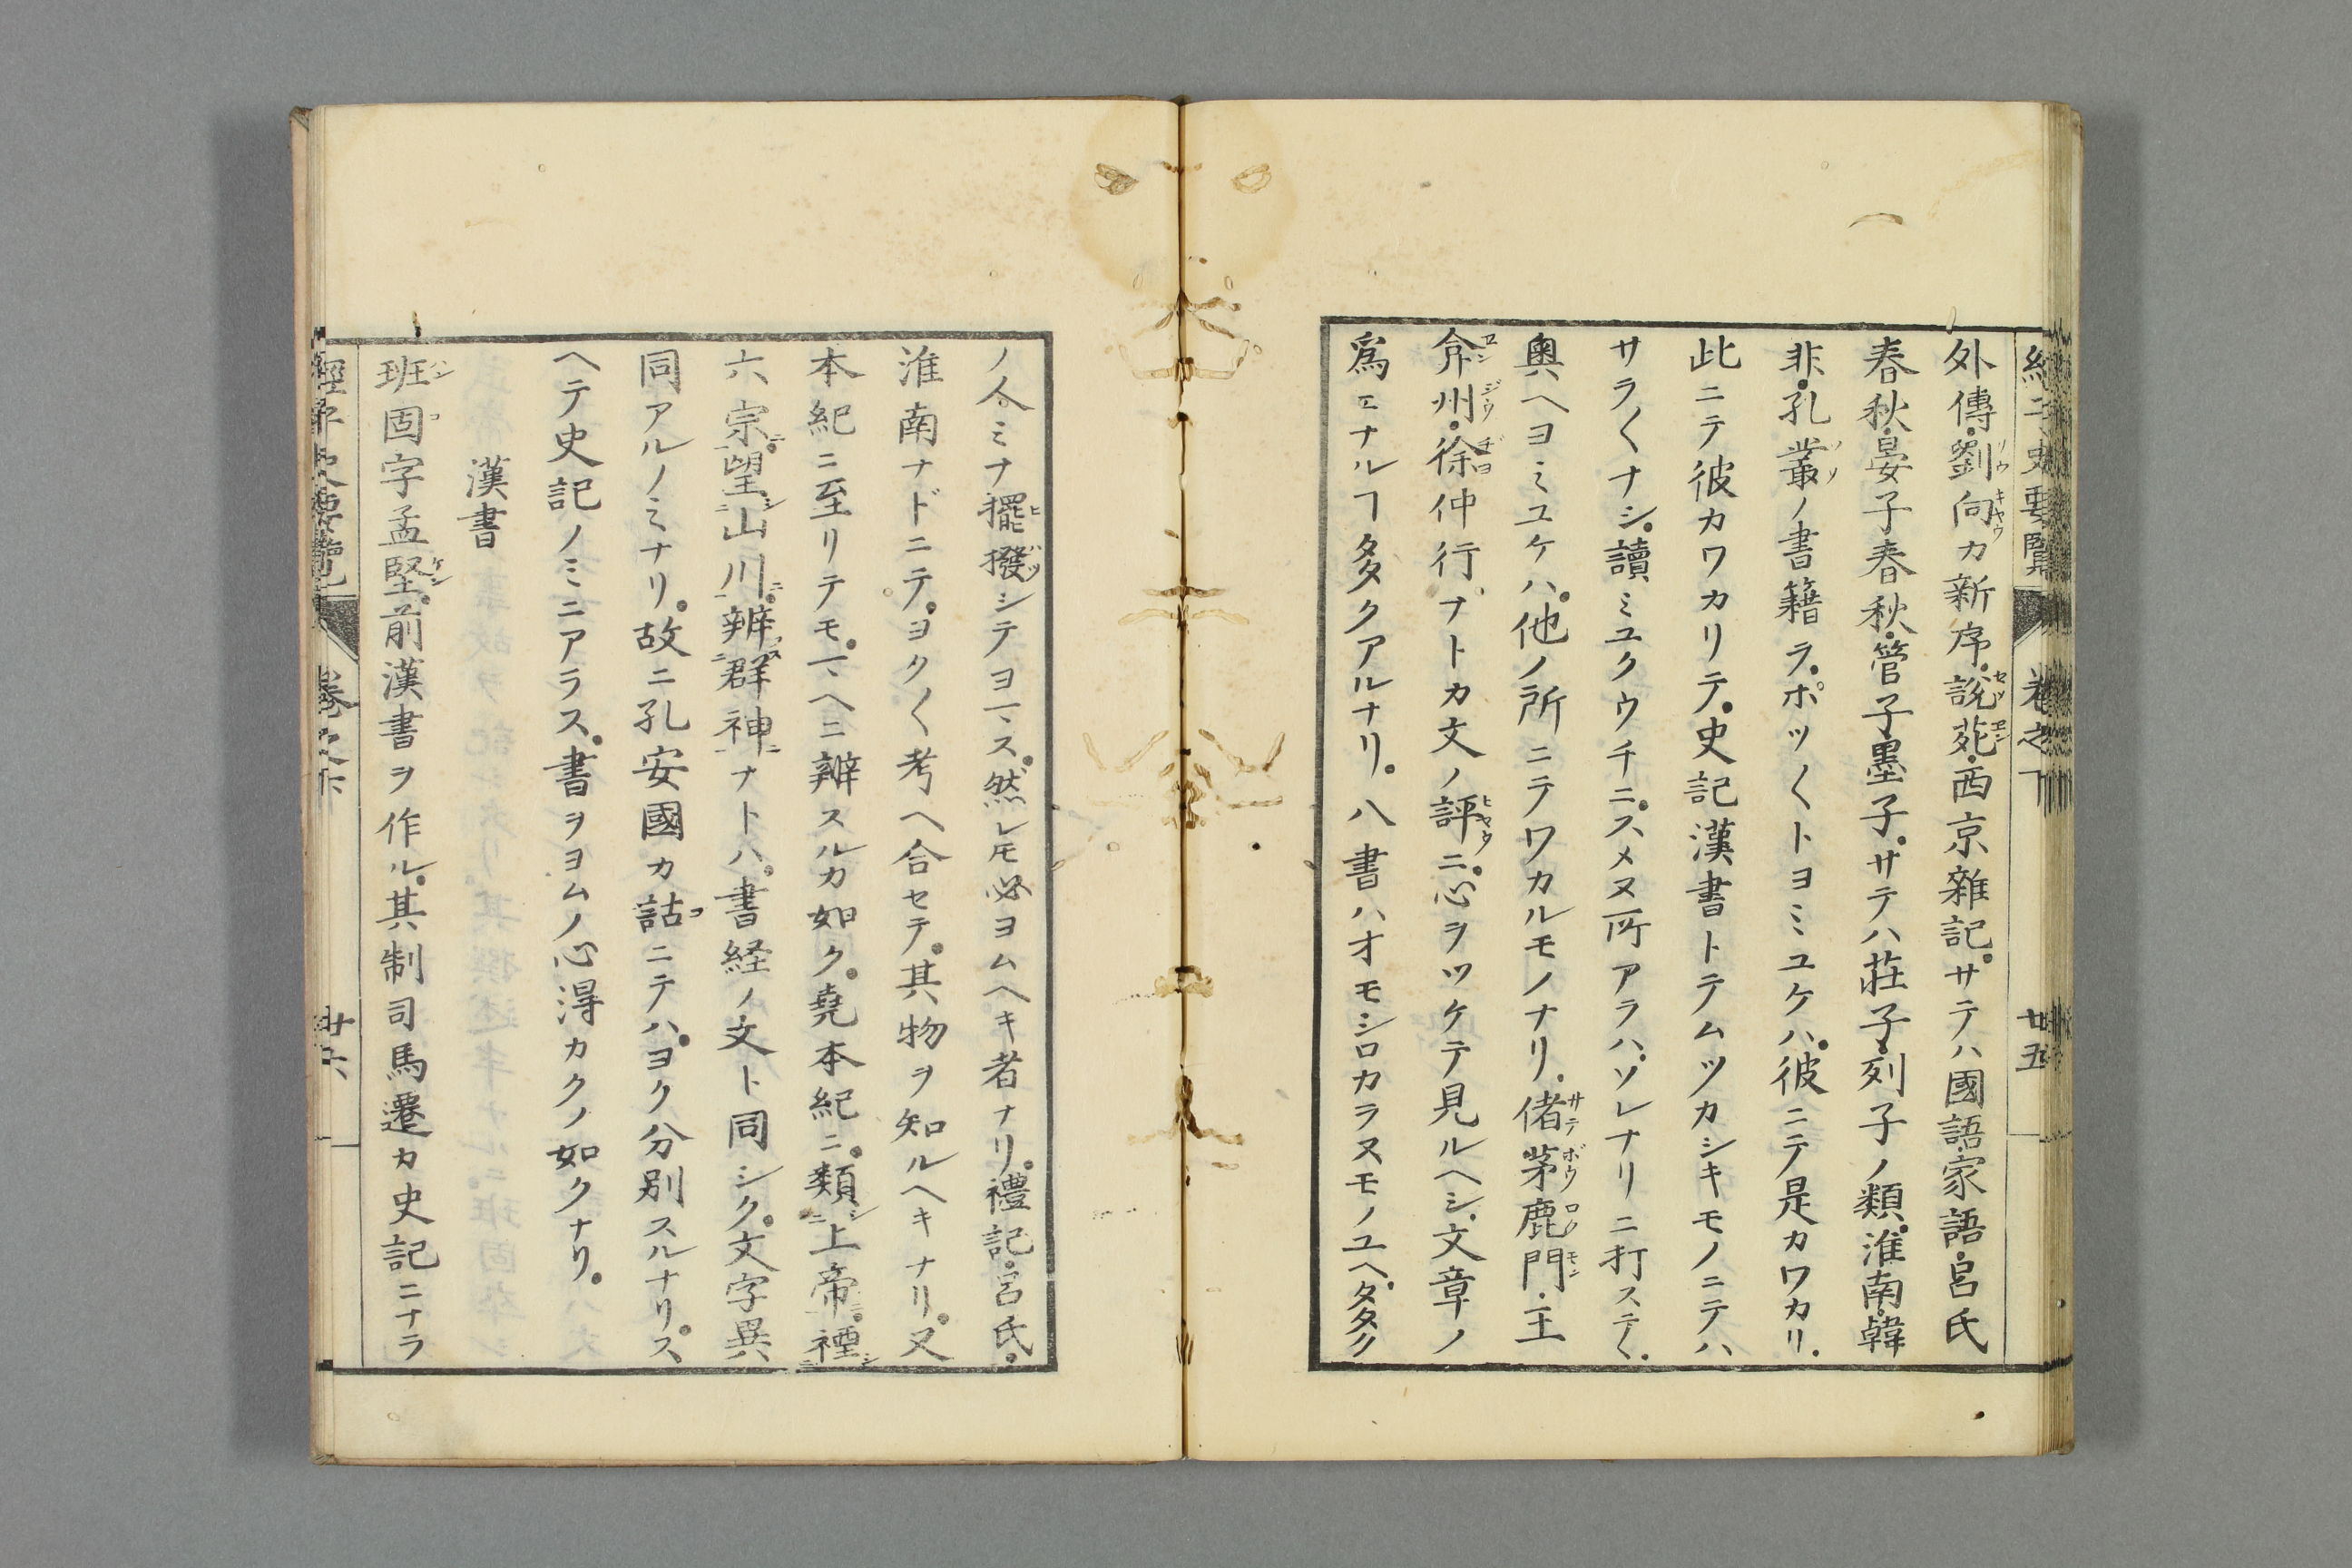 外傳・劉向カ新序・說苑・西京雜記。サテハ國語・家語・呂氏
春秋・晏子春秋・管子墨子。サテハ莊子・列子ノ類。淮南・韓
非・孔叢ノ書籍ラ。ポツ〱トヨミユケハ。彼ニテ是カワカリ。
此ニテ彼カワカリテ。史記漢書トテムツカシキモノニテハ
サラ〱ナシ。讀ミユクウチニ。スメヌ所アラハ。ソレナリニ打ステ〱。
奧ヘヨミユケハ。他ノ所ニテワカルモノナリ。偖茅鹿門・王
弇州・徐仲行。ナトカ文ノ評ニ。心ヲツケテ見ルヘシ。文章ノ
爲ニナルヿ多クアルナリ。八書ハオモシロカラヌモノユヘ。多ク
ノ人ミナ擺撥シテヨマス。然レ𪜈必ヨムヘキ者ナリ。禮記・呂氏・
淮南ナドニテ。ヨク〱考ヘ合セテ。其物ヲ知ルヘキナリ。又
本紀ニ至リテモ。マヘニ辨スルカ如ク。堯本紀ニ。類上帝。禋
六宗。望山川。辨群神ナトハ。書経ノ文ト同シク。文字異
同アルノミナリ。故ニ孔安國カ詁ニテハ。ヨク分別スルナリ。ス
ヘテ史記ノミニアラス。書ヲヨムノ心得カクノ如クナリ。
漢書
班固字孟堅。前漢書ヲ作ル。其制司馬遷カ史記ニナラ
經子史要覽 卷之下 廿六